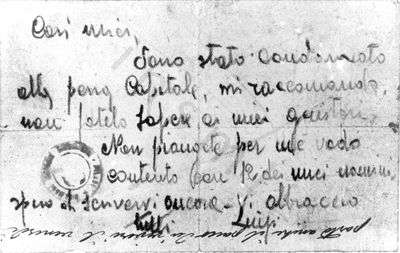 Cari miei,
Sono stato condannato
alla pena Capitale, mi raccomando,
non fatelo sapere ai miei genitori.
Non piangete per me vado
contento con 12 dei miei
spero di scrivervi ancora. Vi abbraccio
tutti Luigi